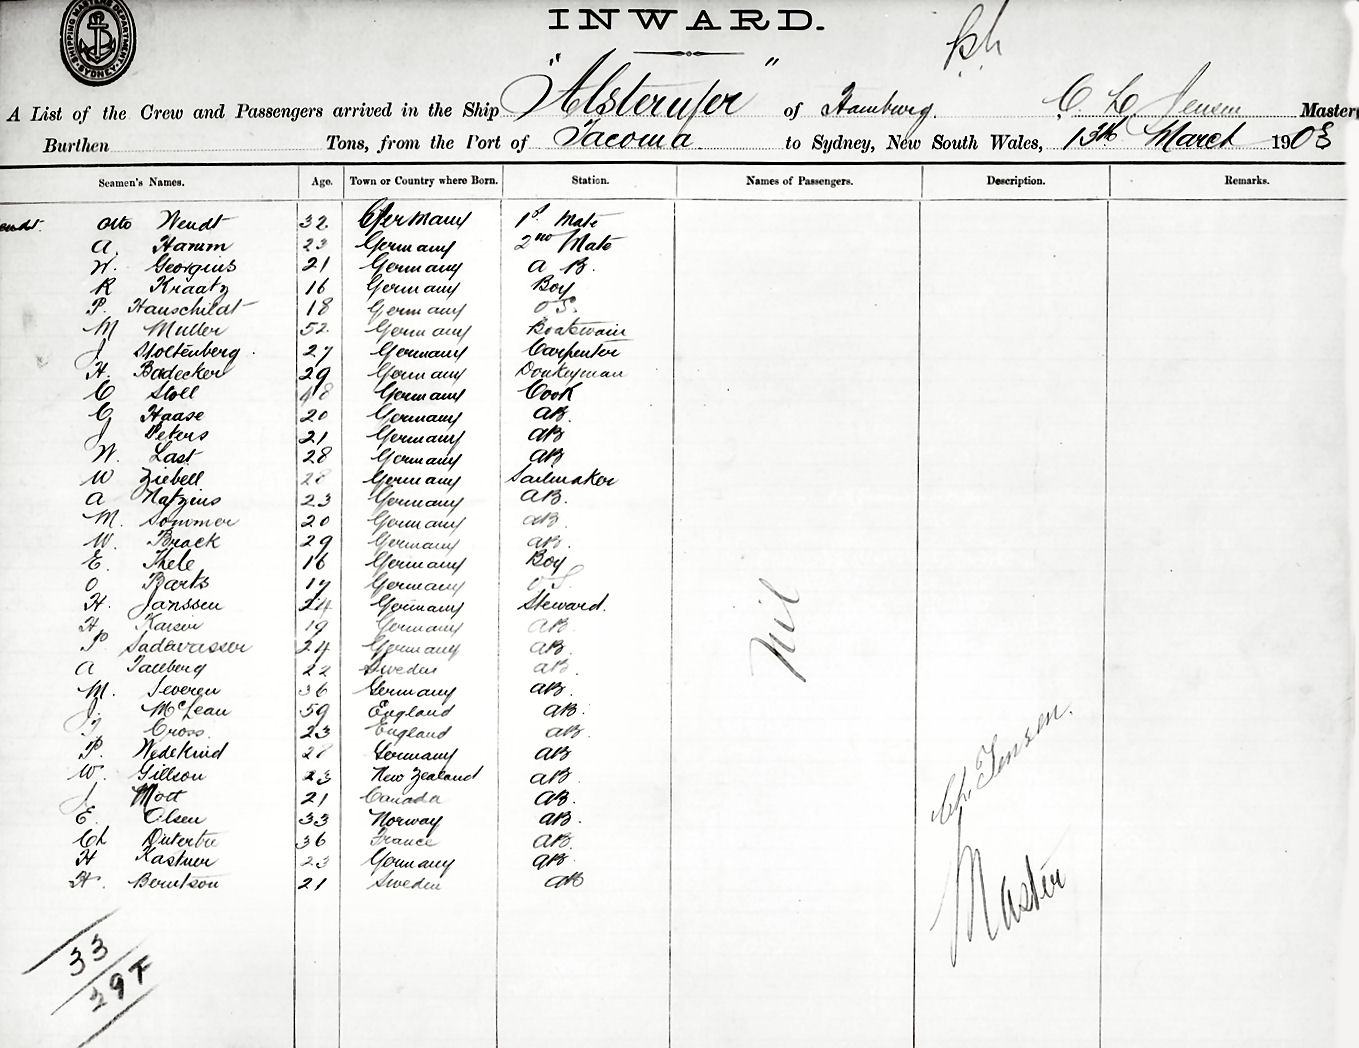 INWARD.
SHIPPING MASTERS DEPARTMENT SYDNEY
A List of the Crew and Passengers arrived in the Ship "Alsterufer" of Hamburg. C. L. Jensen Master
Burthen Tons, from the Port of Tacoma to Sydney, New South Wales, 13th March 1903
Seamen's Names. Age. Town or Country where Born. Station. Names of Passengers. Description. Remarks.
Otto Wendt 32 Germany 1st Mate
A. Hamm 23 Germany 2nd Mate
W. Georgius 21 Germany A B.
R Kraatz 16 Germany Boy
P. Hauschildt 18 Germany O S.
M Muller 52 Germany Boatswain
J Stoltenberg. 27 Germany Carpenter
H. Badecker 29 Germany Donkeyman
C Stoll Germany Cook
G Haase 20 Germany AB.
J Peters 21 Germany AB
W. Last 28 Germany AB
W Ziebell 28 Germany Sailmaker
A 23 Germany AB.
M. Sommer 20 Germany AB.
W. Brack 29 Germany AB.
E. Thele 16 Germany Boy
O Barks 17 Germany O S.
H. Janssen 24 Germany Steward.
H. 19 Germany AB.
P. Sadewasser 24 Germany AB.
A 22 Sweden AB.
M. Severen 36 Germany AB.
J. McLean 59 England AB.
J. Cross. 23 England AB.
P. Wedekind 28 Germany AB
W. Gillson 23 New Zealand AB
J Mott 21 Canada AB.
E. Olsen 33 Norway AB.
Ch Dutertre 36 France AB.
H Kastner 23 Germany AB
H. Berntson 21 Sweden AB
Nil
Ch. Jensen.
Master
33